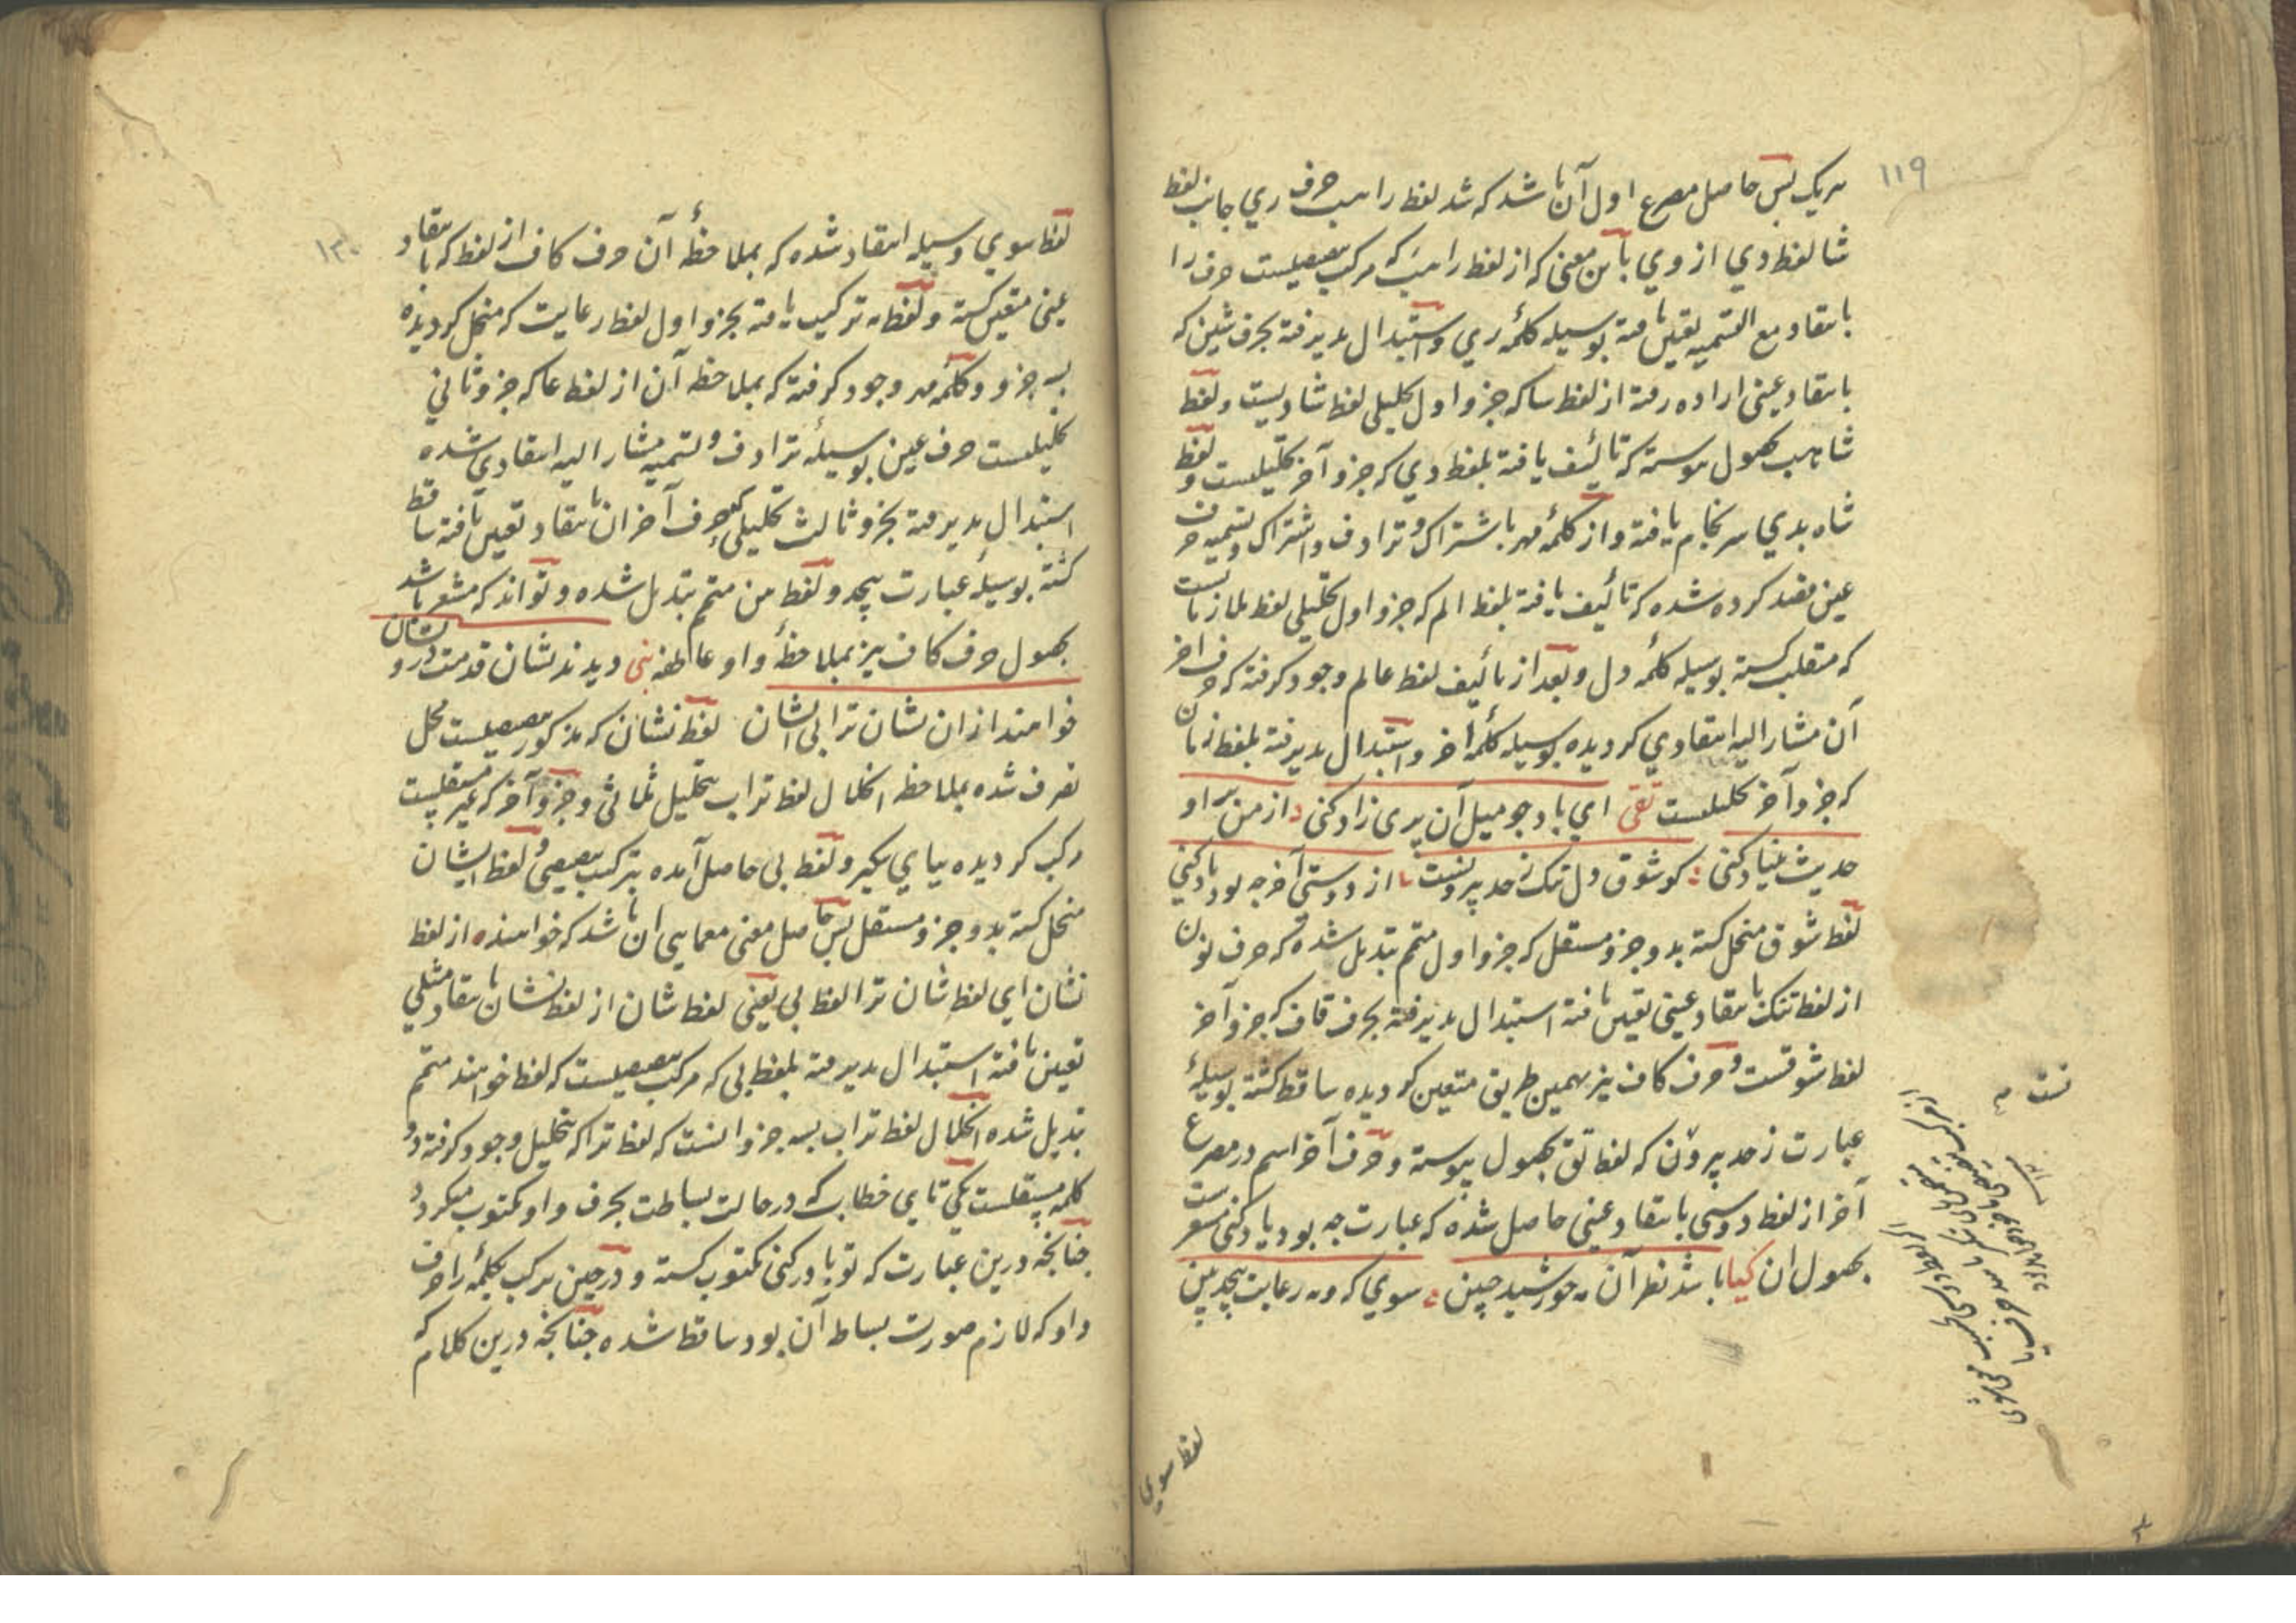 ١١٩
هریک پس حاصل مصرع اول آن باشد که شد لفظ را هب حرف ری جانب لفظ
شا لفظ دی از وی باین معنی که از لفظ راهب که مرکب تصیصیست حرف را
بانتقاد مع التسمیه تعین یافته بوسیله کلمه ری و استبدال پذیرفته بحرف شین که
بانتقاد عینی اراده رفته از لفظ شا که جزو اول تحلیلی لفظ شادیست و لفظ
شاهب بحصول پیوسته که تألیف یافته بلفظ دی که جزو آخر تحلیلیست و لفظ
شاه بدی سرانجام یافته و از کلمه مهر باشتراک و ترادف و اشتراک و تسمیه حرف
عین قصد کرده شده که تألیف یافته بلفظ الم که جزو اول تحلیلی لفظ لمازانست
که منقلب گشته بوسیله کلمه دل و بعد از تألیف لفظ عالم وجود گرفته که حرف آخر
آن مشار الیه انتقادی گردیده بوسیله کلمه آخر و استبدال پذیرفته بلفظ زمان
که جزو آخر تحلیلیست تقی ای باد جو میل آن پری زاد کنی از من بر او
حدیث بنیاد کنی کو شوق دل تنک ز حد بیرونست از دوستی آخر چه بود یاد کنی
لفظ شوق منحل گشته بدو جزو مستقل که جزو اول متمم تبدیل شده که حرف نون
از لفظ تنک بانتقاد عینی تعین یافته استبدال پذیرفته بحرف قاف که جزو آخر
لفظ شوقست و حرف کاف نیز بهمین طریق متعین گردیده ساقط گشته بوسیله
عبارت ز حد بیرون که لفظ تق بحصول پیوسته و حرف آخر اسم در مصرع
آخر از لفظ دوستی بانتقاد عینی حاصل شده که عبارت چه بود یاد کنی مشعرست
بحصول ان کیا باشد نظر آن مه خورشید جبین سوی که و مه رعایت بیحد بین
لفظ سوی
١٢٠
لفظ سوی وسیله انتقاد شده که بملاحظه آن حرف کاف از لفظ که بانتقاد
عینی متعین گشته و لفظ مه ترکیب یافته بجزو اول لفظ رعایت که منحل گردیده
بسه جزو و کلمه مهر وجود گرفته که بملاحظه آن از لفظ عا که جزو ثانی
تحلیلیست حرف عین بوسیله ترادف و تسمیه مشار الیه انتقادی شده
استبدال پذیرفته بجزو ثالث تحلیلی که حرف آخر ان بانتقاد تعین یافته ساقط
گشته بوسیله عبارت بیحد و لفظ من متمم تبدیل شده و تواند که مشعر باشد
بحصول حرف کاف نیز بملاحظه واو عاطفه بنی دیدند نشان قدمت درویشان
خواهند ازان نشان ترابی ایشان لفظ نشان که مذکور تصیصیست محل
تصرف شده بملاحظه انحلال لفظ تراب بتحلیل ثلاثی و جزو آخر که غیر مستقلیست
مرکب گردیده بیای نکیر و لفظ بی حاصل آمده بترکیب تصیصی و لفظ ایشان
منحل گشته بدو جزو مستقل پس حاصل معنی معمایی ان باشد که خواهند از لفظ
نشان ای لفظ شان ترا لفظ بی یعنی لفظ شان از لفظ نشان بانتقاد مثلی
تعین یافته استبدال پذیرفته بلفظ بی که مرکب تصیصیست که لفظ خواهند متمم
تبدیل شده انحلال لفظ تراب بسه جزو انست که لفظ ترا که بتحلیل وجود گرفته دو
کلمه مستقلست یکی تای خطاب که در حالت بساطت بحرف واو مکتوب میگردد
چنانچه درین عبارت که تو باور کنی مکتوب گشته و در حین ترکیب بکلمه را حرف
واو که لازم صورت بساطه آن بود ساقط شده چنانچه درین کلام که